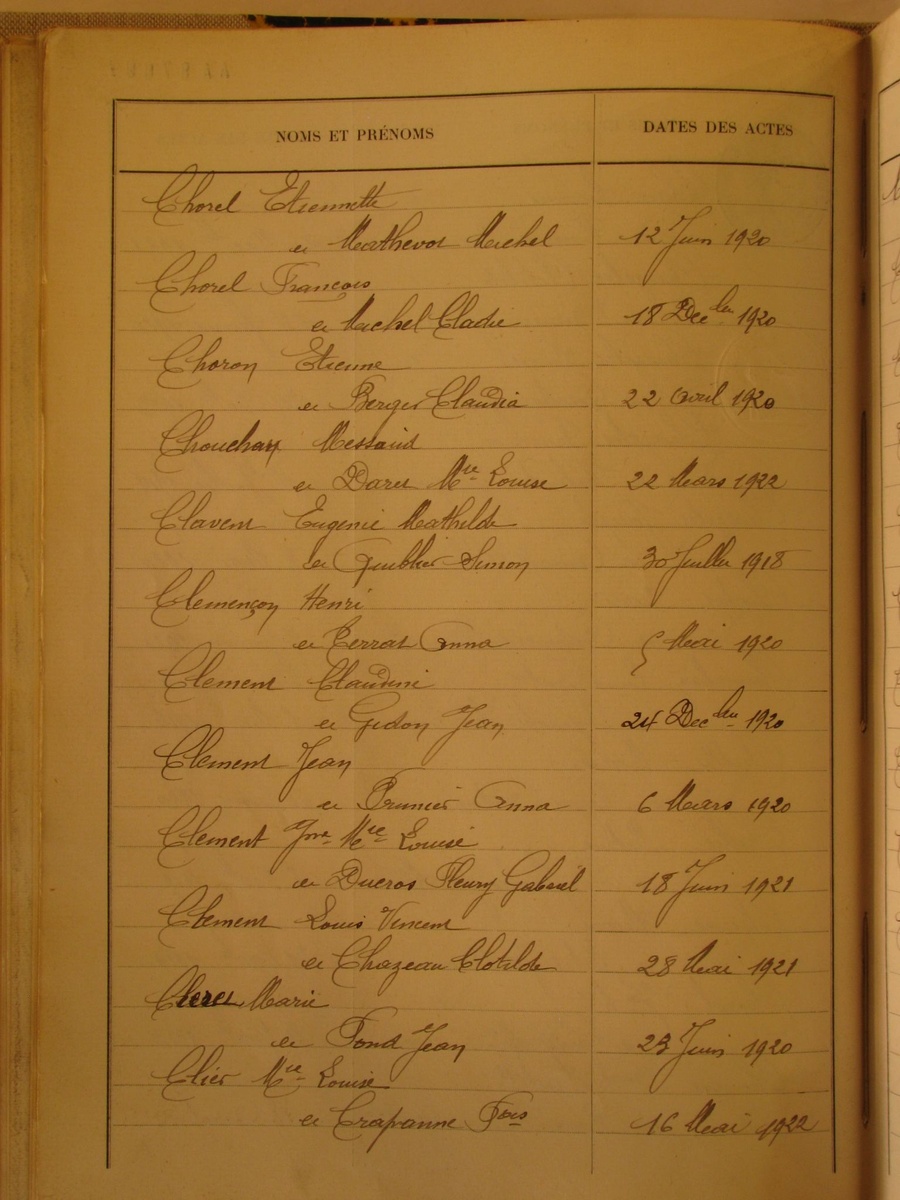 NOMS ET PRÉNOMS DATES DES ACTES
Chorel Etiennette
et Mathevot Michel 12 Juin 1920
Chorel François
et Michel Cladie 18 Decbre 1920
Choron Etienne
et Berger Claudia 22 Avril 1920
Chouchan Messaud
et Daret Mie Louise 22 Mars 1922
Clavent Eugenie Mathilde
et Guiblier Simon 30 Juillet 1918
Clemençon Henri
et Terrat Anna 5 Mai 1920
Clement Claudine
et Gidon Jean 24 Decbre 1920
Clement Jean
et Prunier Anna 6 Mars 1920
Clement Mie Louise
et Ducros Fleury Gabriel 18 Juin 1921
Clement Louis Vincent
et Chazeau Clotilde 28 Mai 1921
Cleret Marie
et Fond Jean 23 Juin 1920
Clier Mie Louise
et Crapanne Fois 16 Mai 1922